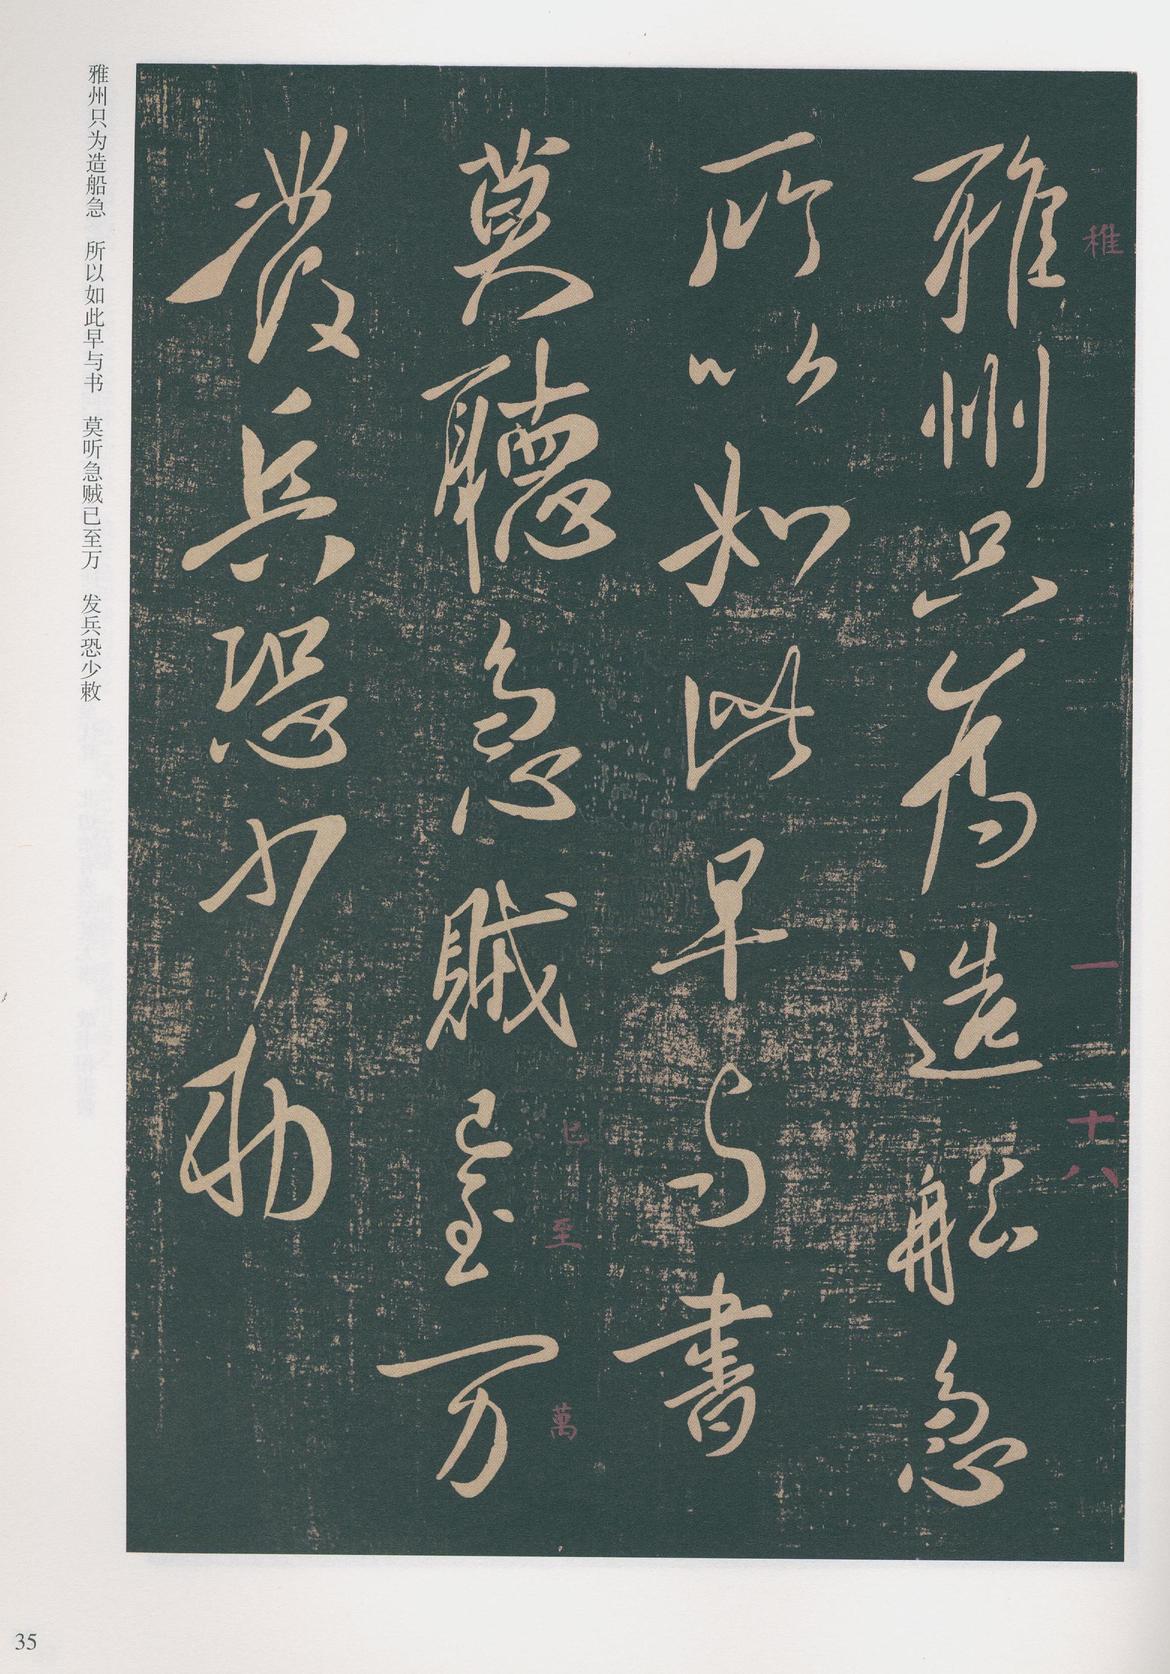 雅州只為造船急
所以如此早与書
莫聽急賊已至万
發兵恐少勅
稚
一
十八
已
至
萬
雅州只为造船急 所以如此早与书 莫听急贼已至万 发兵恐少敕
35